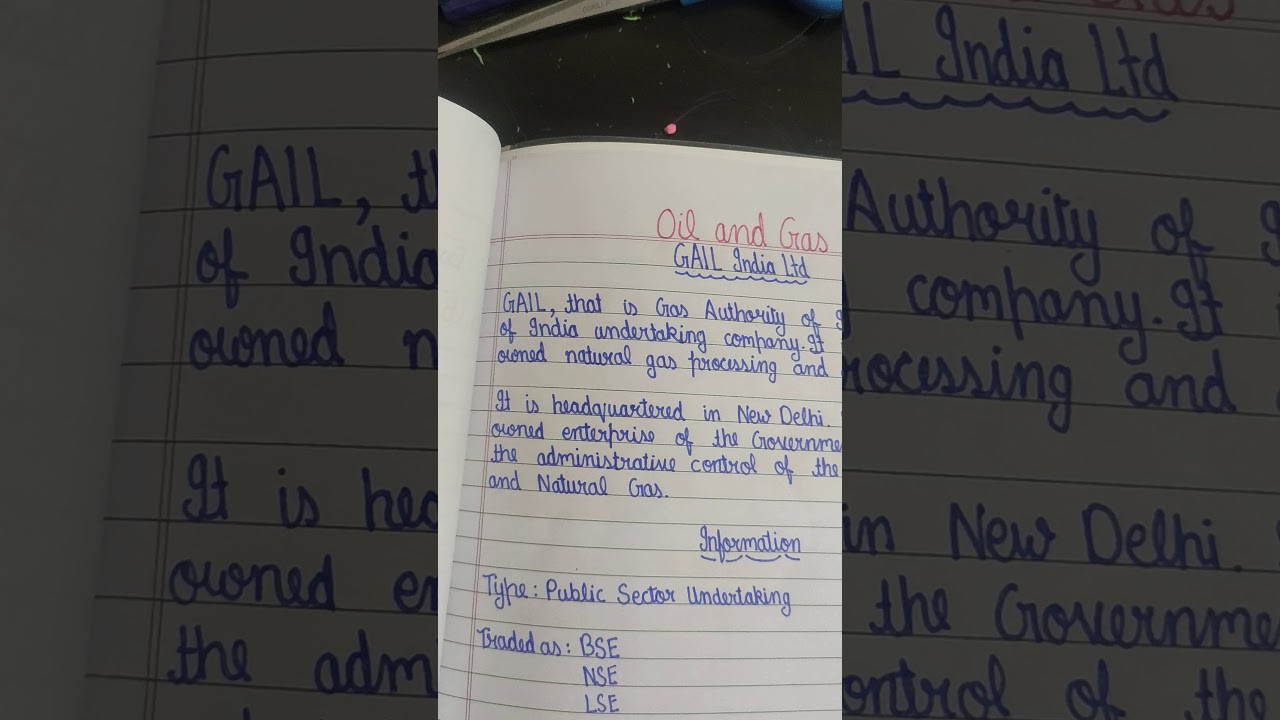 Oil and Gas
GAIL India Ltd
GAIL, that is Gas Authority of
of India undertaking company. It
owned natural gas processing and
It is headquartered in New Delhi.
owned enterprise of the Governme
the administrative control of the
and Natural Gas.
Information
Type: Public Sector Undertaking
Traded as: BSE
NSE
LSE